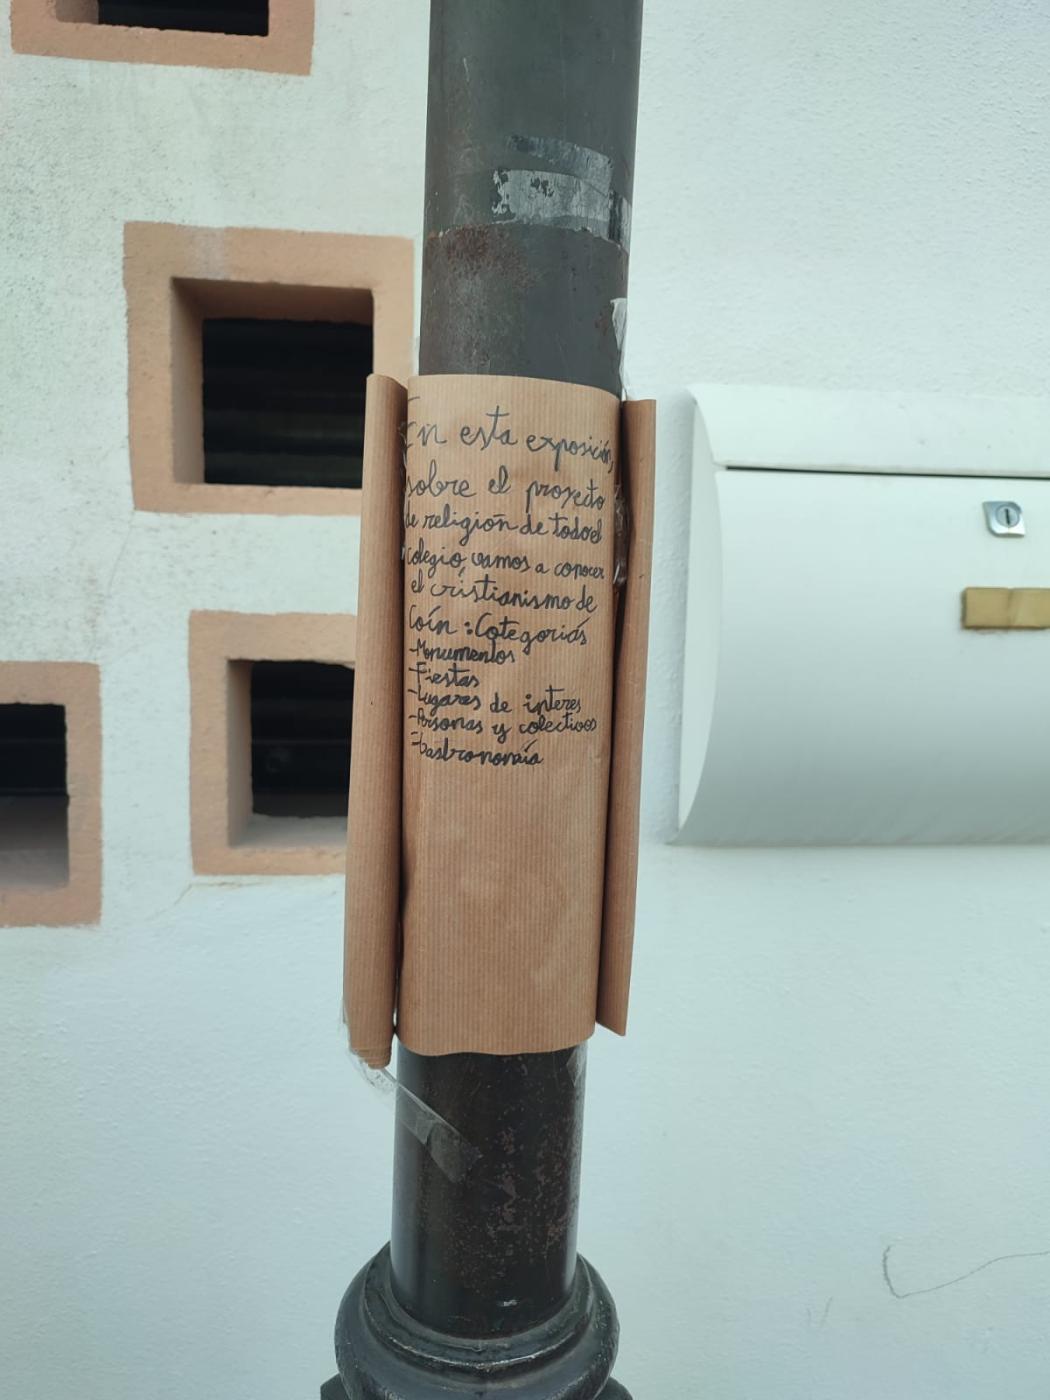 En esta exposición,
sobre el proyecto
de religión de todo el
colegio, vamos a conocer
el cristianismo de
Coín : Categorías
-Monumentos
-Fiestas
-Lugares de interes
-Personas y colectivos
-Gastronomía